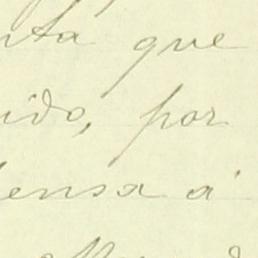 nta que
ido, por
ensa á